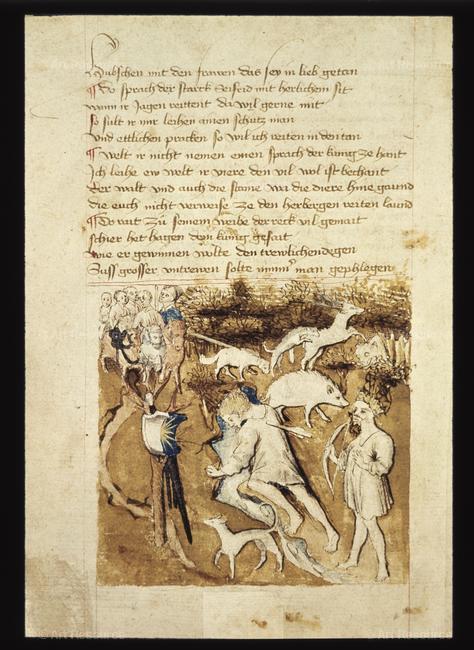 Hübschen mit den frawen das sey in lieb getan
Do sprach der starck Seifrid mit herlichem sit
wann ir Jagen reittent da wil gerne mit
so sult ir mir leihen ainen schutz man
vnd ettlichen pracken so wil ich reiten in den tan
welt ir nicht nemen einen sprach der künig ze hant
Ich leihe ew welt ir viere den vil wol ist bechant
Der walt vnd auch die staine wa die diere hine gaund
die euch nicht verweise ze den herbergen reiten laund
Do rait zü seinem weibe der reck vil gemait
schier het hagen dem künig gesait
wie er gewinnen wolte den trewlichen degen
Suss grosser vntrewen solte nimmer man gephlegen
Art Resource